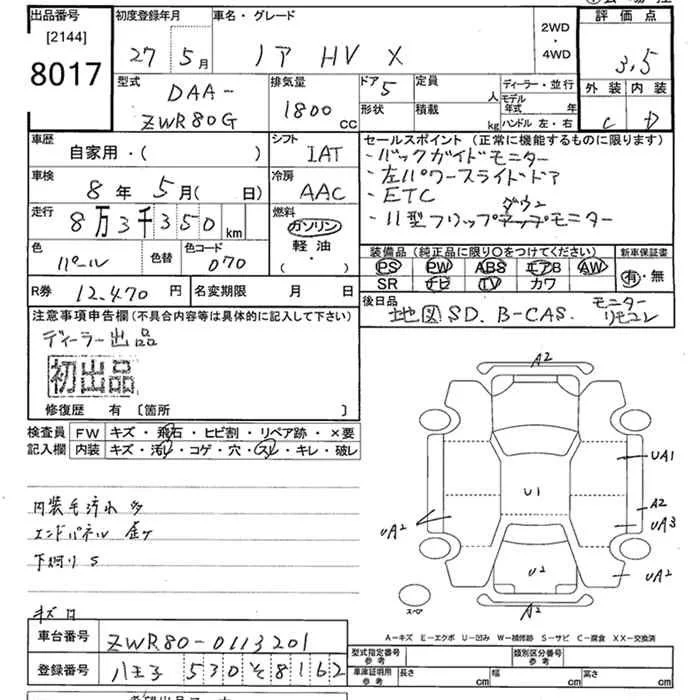 出品番号
[2144]
8017
初度登録年月
27 5月
車名・グレード
ノア HV X
2WD
・
4WD
評価点
3.5
外装 内装
C D
型式
DAA-
ZWR80G
排気量
1800 CC
ドア 5
形状
定員 人
積載 kg
ディーラー・並行
モデル年式 年
ハンドル 左・右
車歴
自家用・( )
シフト
IAT
車検
8年 5月( 日)
冷房
AAC
走行
8万3千350 km
燃料
ガソリン
軽油
( ・ )
色
パール
色替
色コード
070
R券 12,470円
名変期限 月 日
セールスポイント (正常に機能するものに限ります)
・バックガイドモニター
・左パワースライドドア
・ETC
・11型フリップダウンモニター
装備品(純正品に限り○をつけてください)
PS PW ABS エアB AW
SR ナビ TV カワ
新車保証書
有・無
後日品
地図SD. B-CAS. モニターリモコン
注意事項申告欄(不具合内容等は具体的に記入して下さい)
ディーラー出品
初出品
修復歴 有 〔箇所 〕
検査員記入欄
FW キズ・飛石・ヒビ割・リペア跡・×要
内装 キズ・汚レ・コゲ・穴・スレ・キレ・破レ
内装毛汚れ多
エンドパネル
下廻り S
キズ
A2
UA1
A2
UA3
UA2
U1
UA2
U2
A2
スペア
A-キズ E-エクボ U-凹み W-補修跡 S-サビ C-腐食 XX-交換済
車台番号
ZWR80-0113201
登録番号
八王子 530 そ 8162
型式指定番号
参考
類別区分番号
参考
車庫証明用
参考
長さ cm
幅 cm
高さ cm